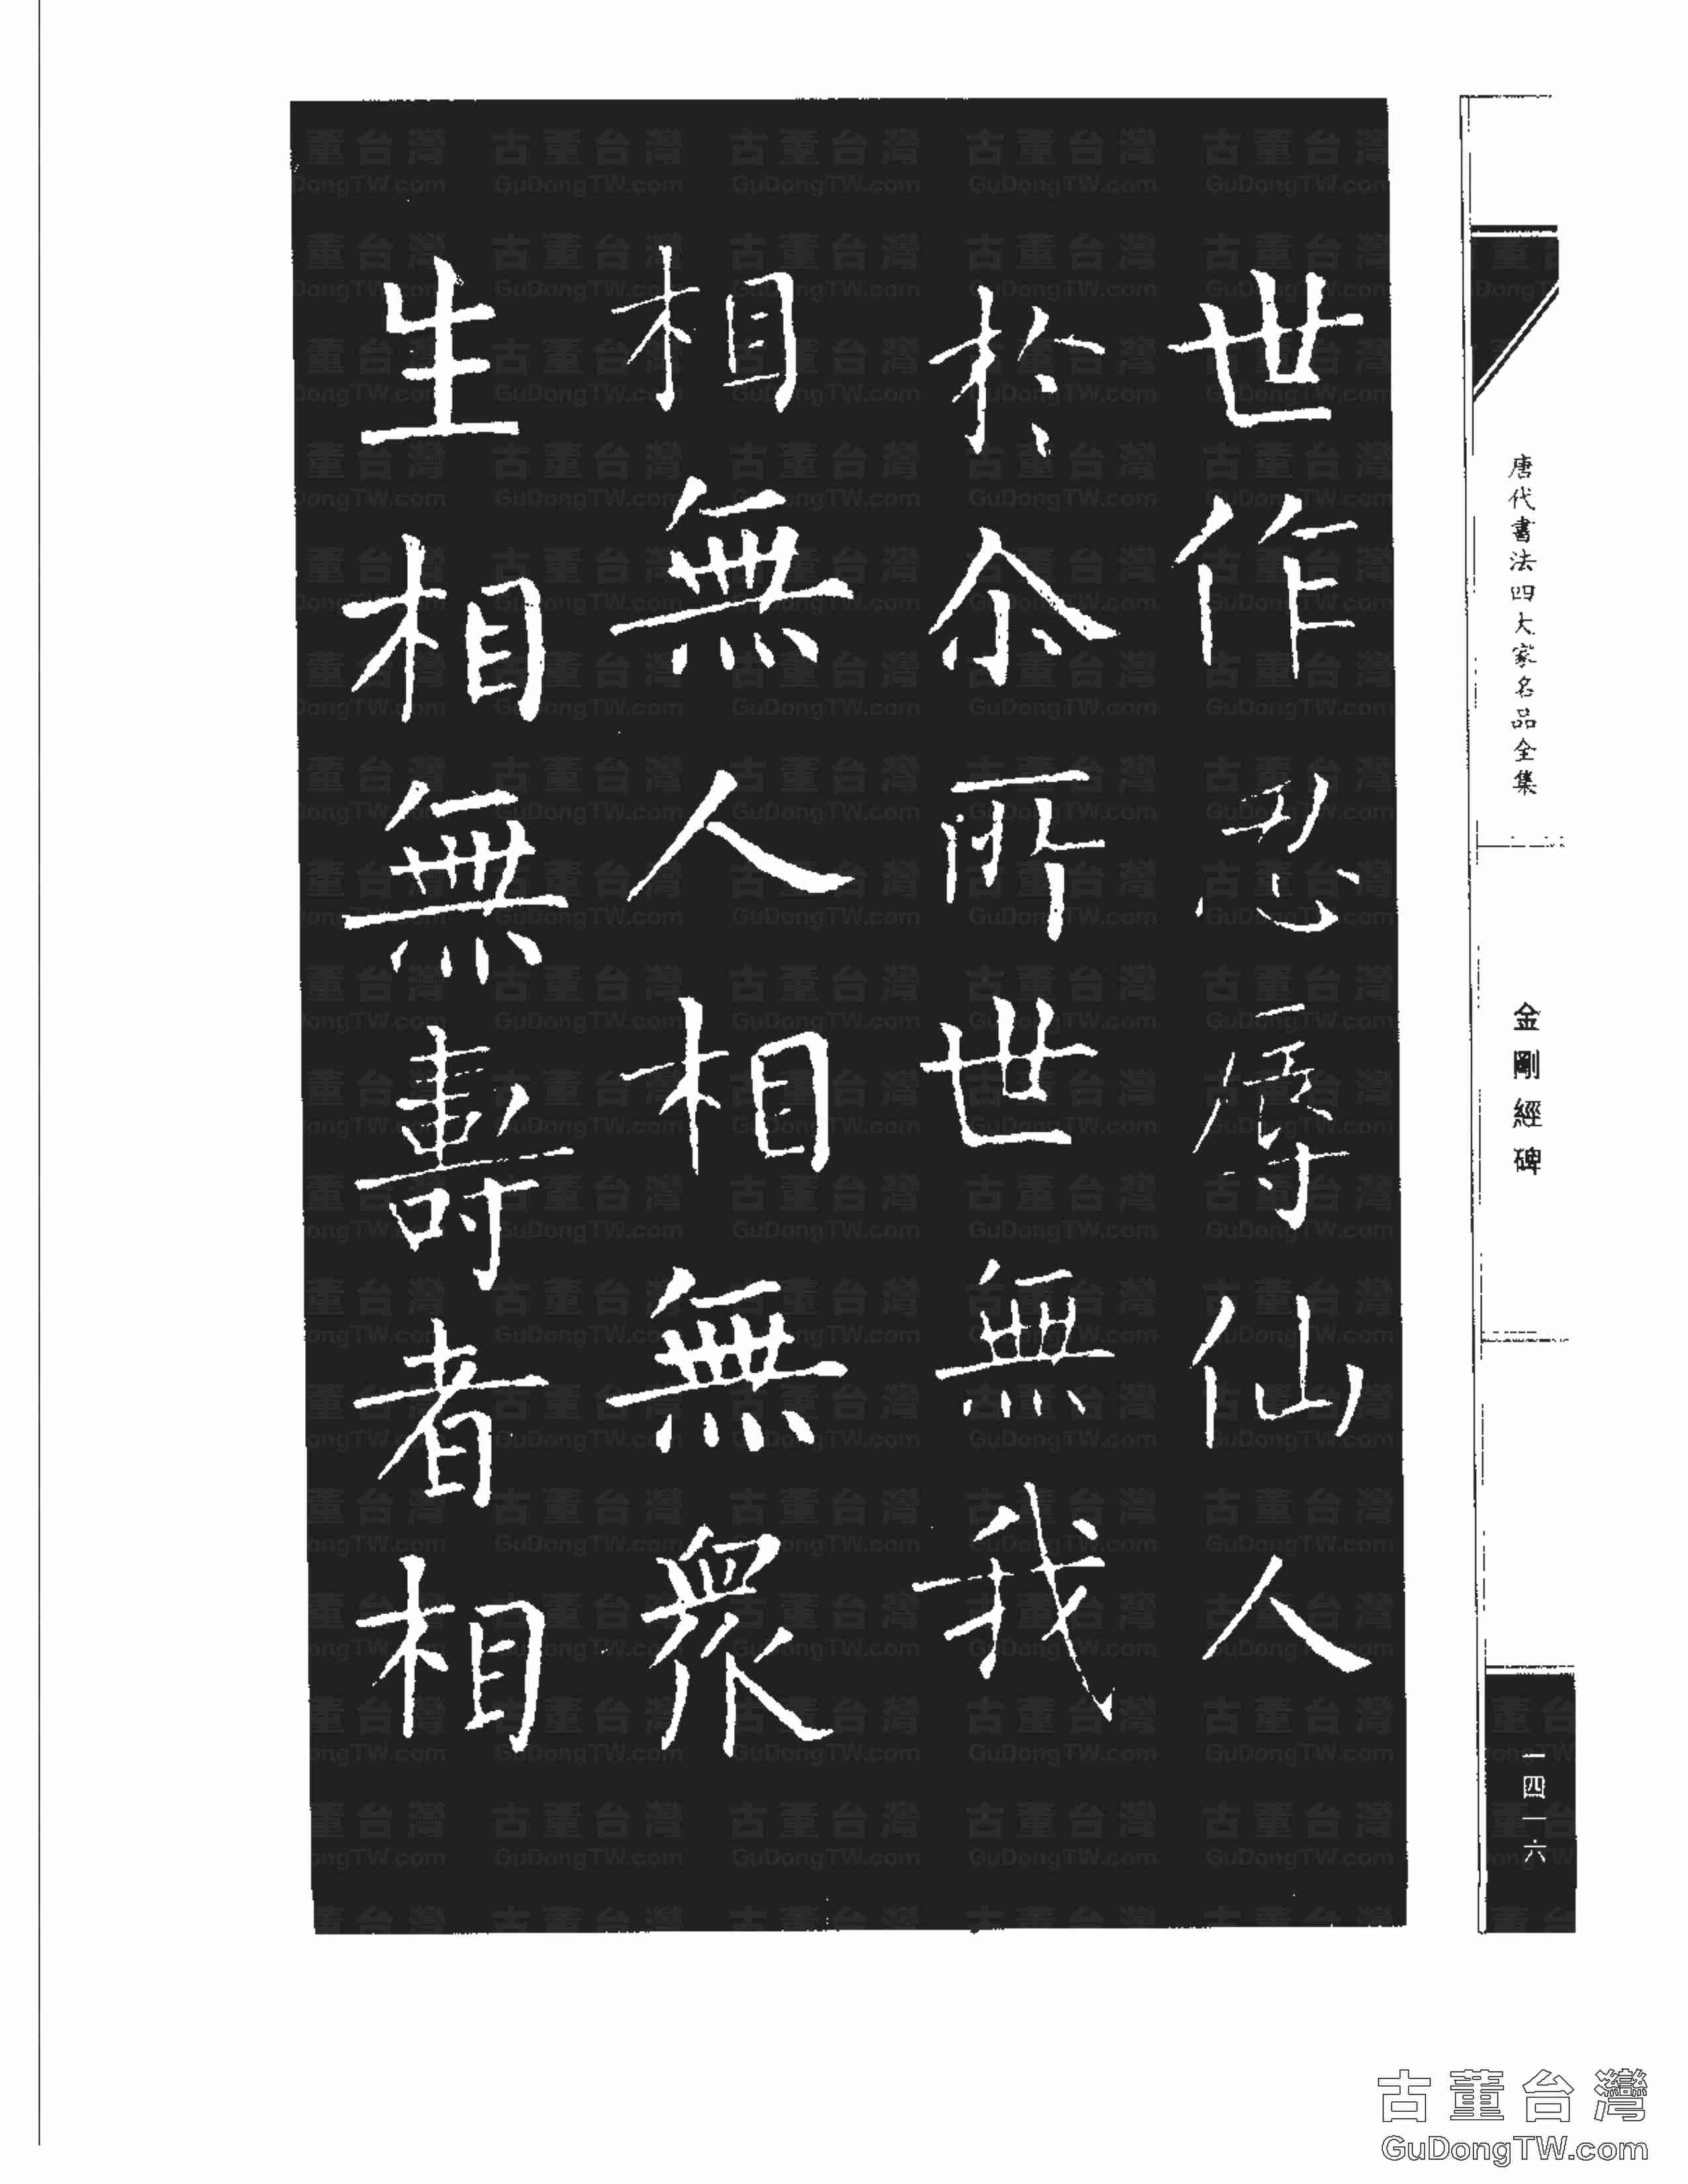 唐代書法四大家名品全集
金剛經碑
一四一六
世作忍辱仙人
於尒所世無我
相無人相無衆
生相無壽者相
古董台灣
GuDongTW.com